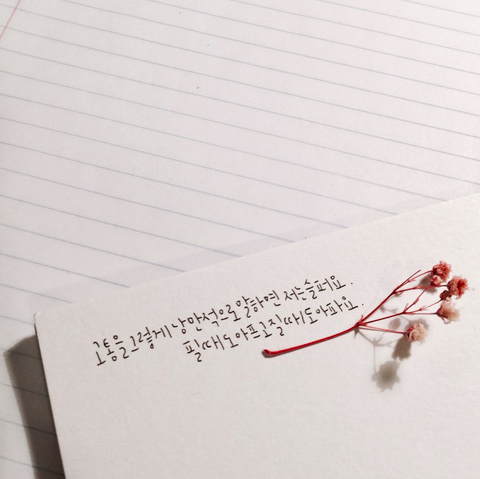 고통을 그렇게 낭만적으로 말하면 저는 슬퍼요.
필 때도 아프고 질 때도 아파요.